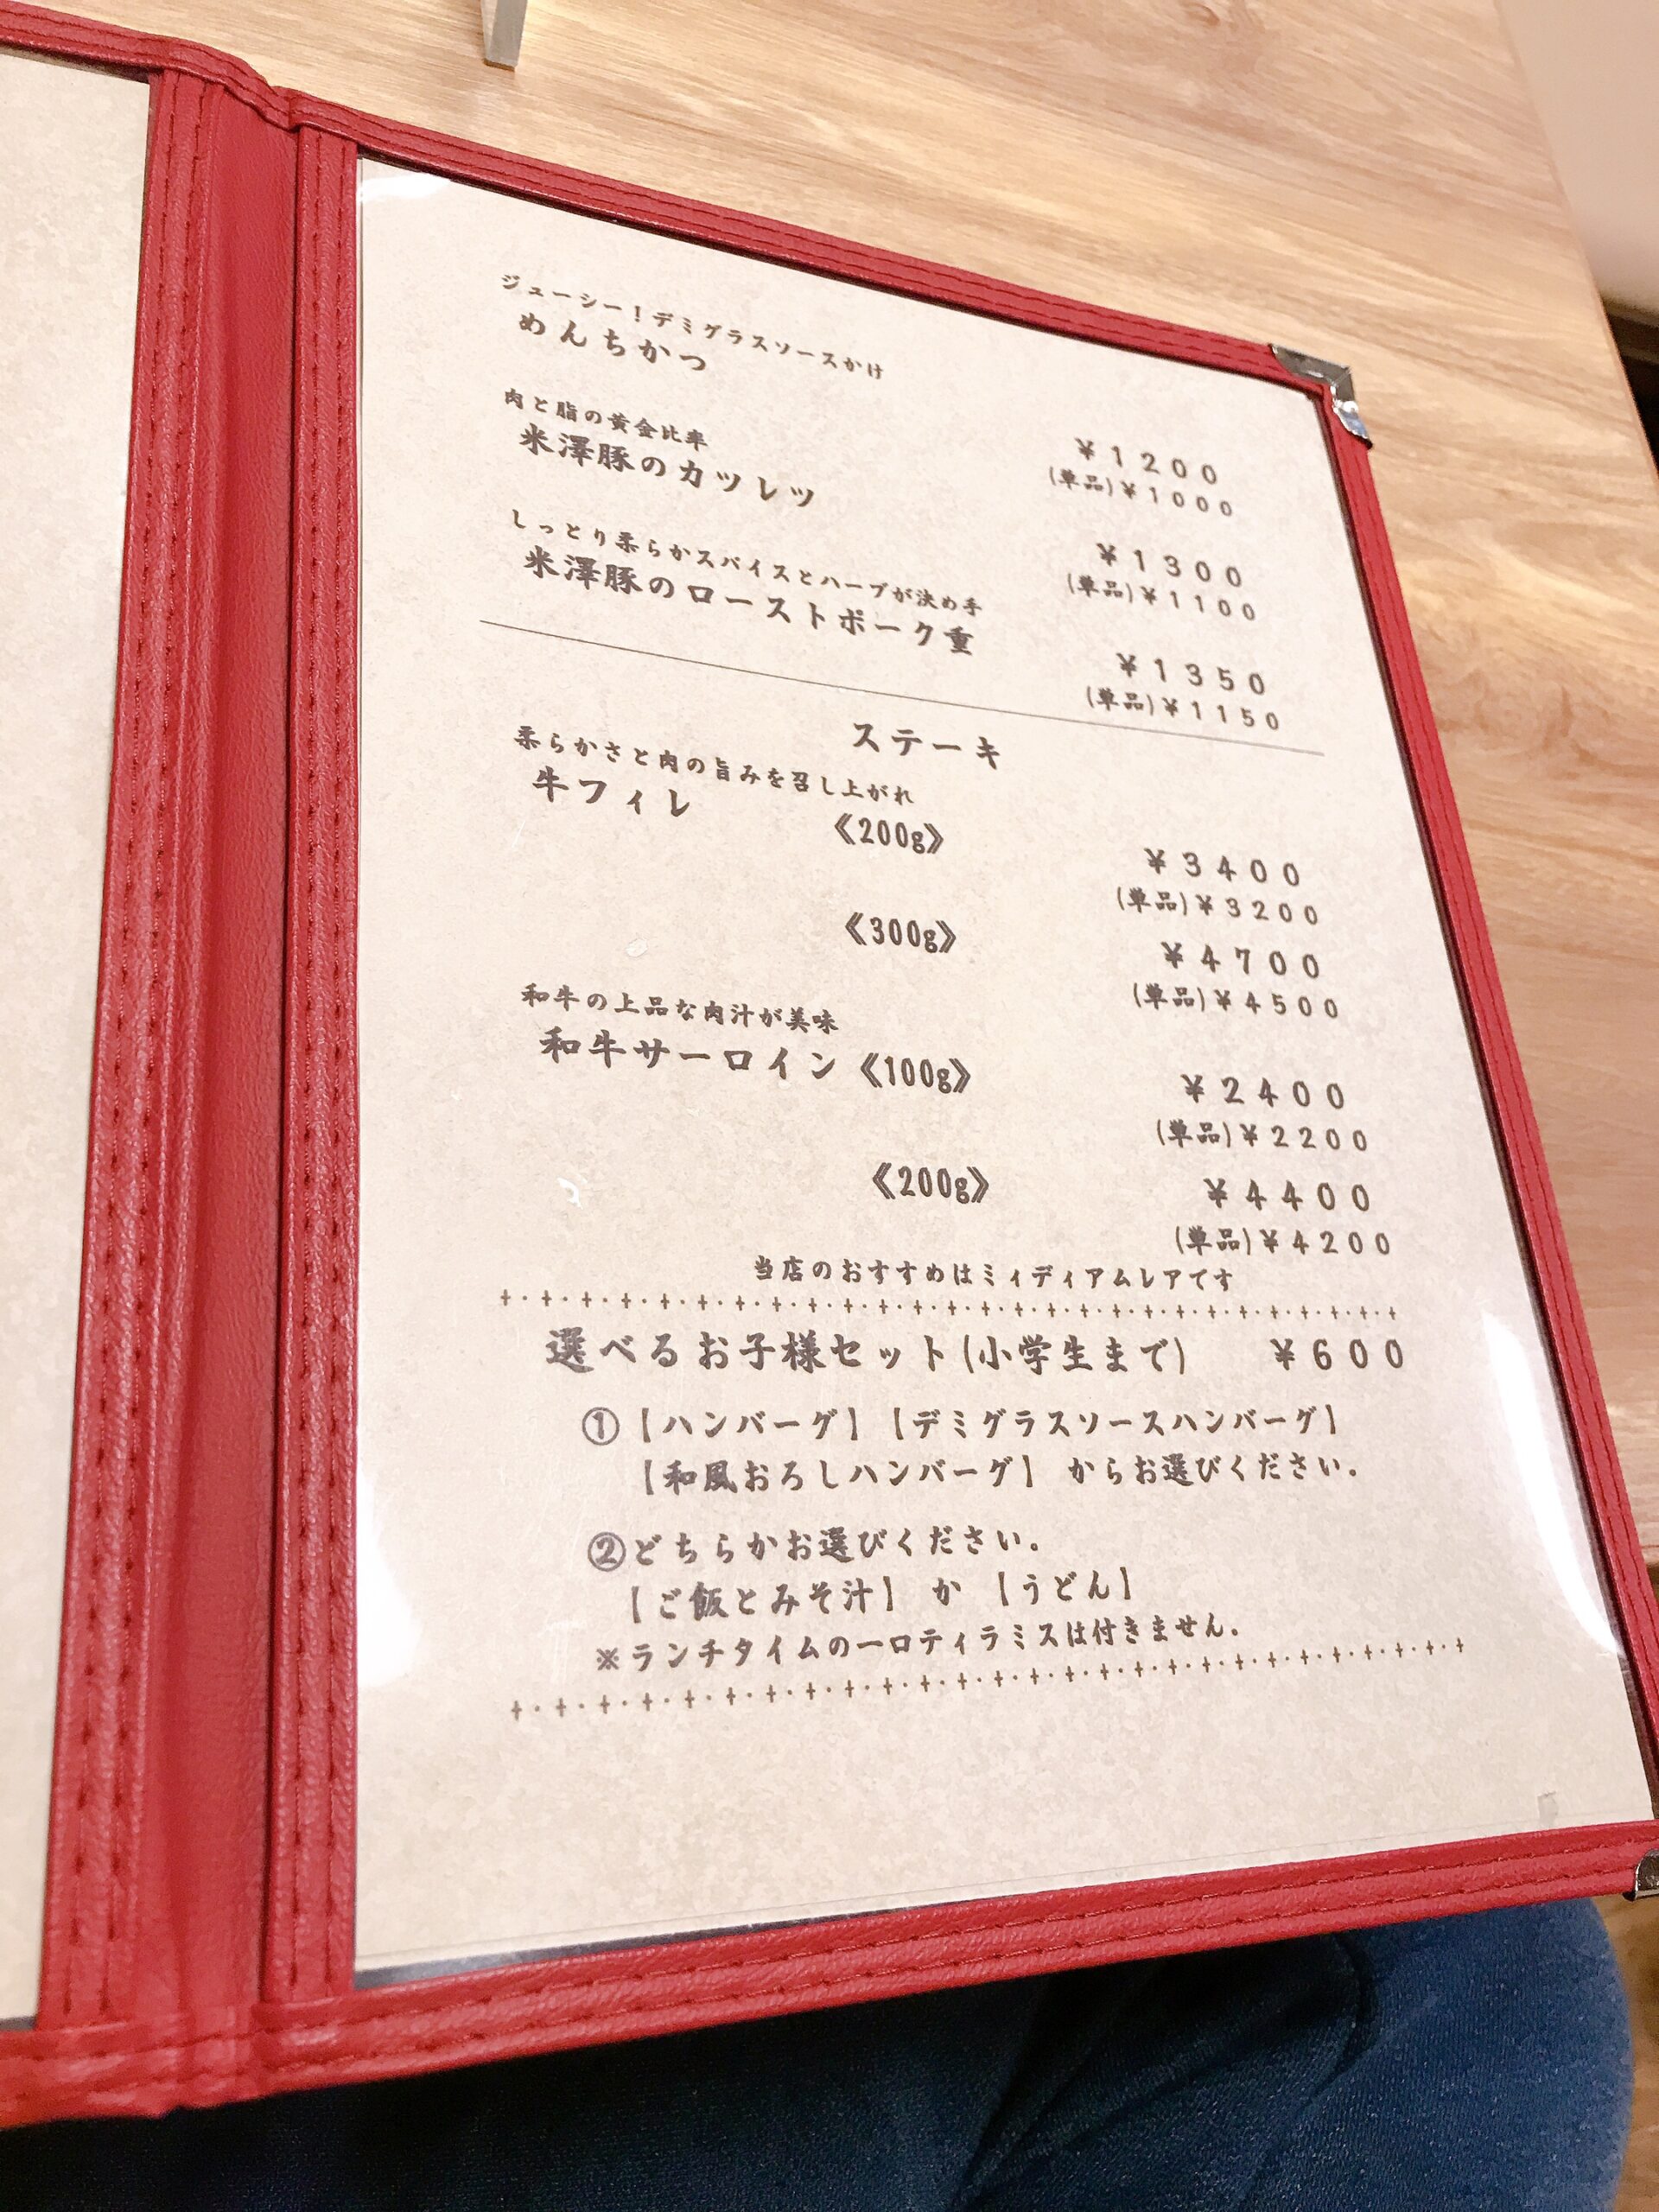 ジューシー！デミグラスソースかけ
めんちかつ
¥１２００
(単品)¥１０００
肉と脂の黄金比率
米澤豚のカツレツ
¥１３００
(単品)¥１１００
しっとり柔らかスパイスとハーブが決め手
米澤豚のローストポーク重
¥１３５０
(単品)¥１１５０
ステーキ
柔らかさと肉の旨みを召し上がれ
牛フィレ 《200g》
¥３４００
(単品)¥３２００
《300g》
¥４７００
(単品)¥４５００
和牛の上品な肉汁が美味
和牛サーロイン《100g》
¥２４００
(単品)¥２２００
《200g》
¥４４００
(単品)¥４２００
当店のおすすめはミィディアムレアです
選べるお子様セット(小学生まで) ¥６００
①【ハンバーグ】【デミグラスソースハンバーグ】
【和風おろしハンバーグ】 からお選びください。
②どちらかお選びください。
【ご飯とみそ汁】 か 【うどん】
※ランチタイムの一口ティラミスは付きません。